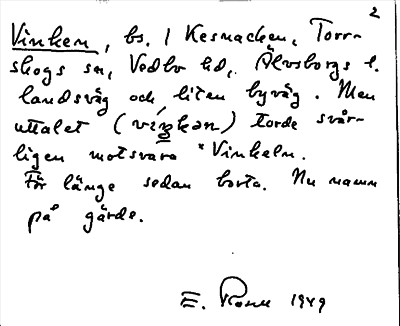 2
Vinken, bs. i Kesnacken, Torr-
skogs sn, Vedbo hd, Älvsborgs l.
landsväg och liten byväg. Men
uttalet (víŋkən) torde svår-
ligen motsvara *Vinkeln.
För länge sedan borta. Nu namn
på gärde.
E. 1949